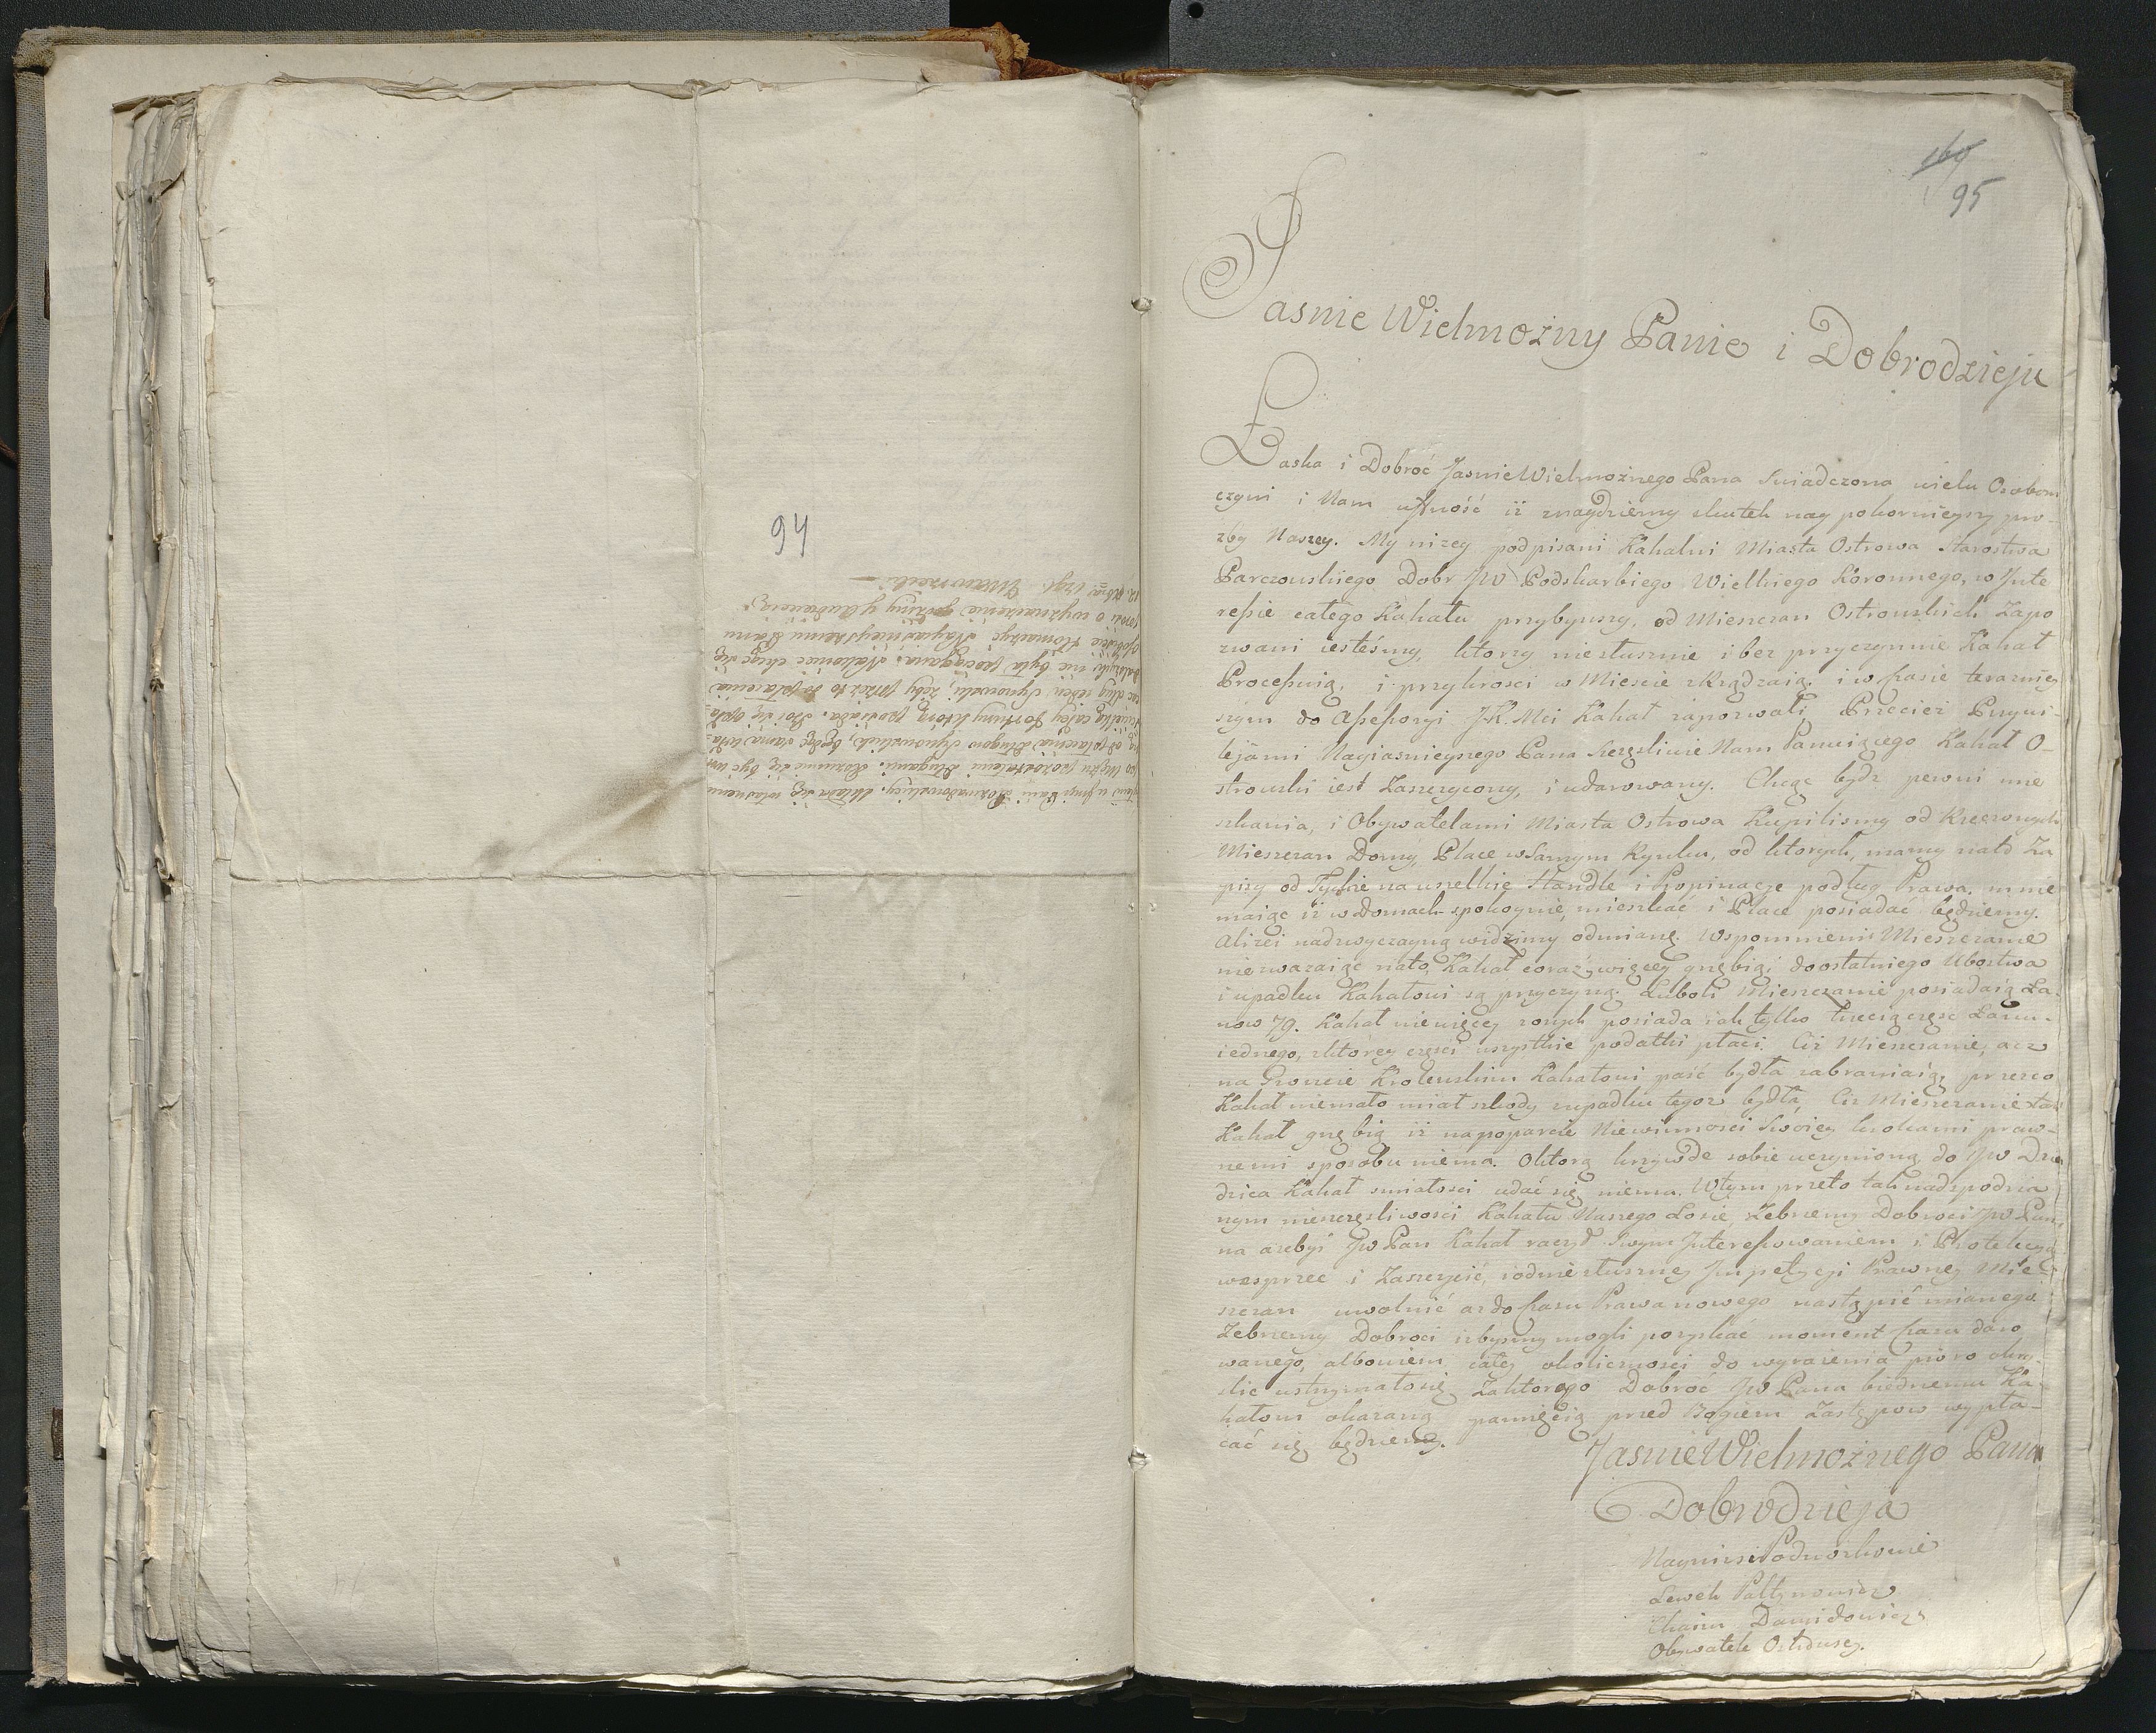 94
po Mężu pozostałemi długami. Rozumie się być wol
od płacenia długow Synowskich, będąc sama
całey fortuny ktorą posiada. Boi się
żeby przez to do płacenia
nie była pociągana. Nakoniec chce się
tłomaczyć Nayiaśnieyszemu Panu
o wyznaczenie godziny y Audiencią
169
95
Jasnie Wielmożny Panie i Dobrodzieju
Łaska i Dobroć Jasnie Wielmożnego Pana Swiadczona wielu Osobom
czyni i Nam ufność iż znaydziemy skutek nay pokornieyszy pro-
zby Naszey. My niżey podpisani Kahalni Miasta Ostrowa Starostwa
Parczewskiego Dobr JW Podskarbiego Wielkiego Koronnego, w Jnte
ressie całego Kahału przybywszy, od Mieszczan Ostrowskich Zapo
zwani iesteśmy, ktorzy niesłusznie i bez przyczynnie Kahał
Processuią, i przykrosci w Miescie zrządzaią, i w czasie teraznie
szym do Assessoryi JK. Mci Kahał zapozwali, Przecież Przywi-
lejami Nayiasnieyszego Pana szczęsliwie Nam Panuiącego Kahał O-
strowski iest Zaszczycony, i udarowany. Chcąc bydz pewni mie
szkania, i Obywatelami Miasta Ostrowa Kupilismy od Rzeczonych
Mieszczan Domy, Place w Samym Rynku, od ktorych, mamy nato Za
pisy od Tychże na wszelkie Handle i Propinacye podług Prawa. mnie
maiąc iż w Domach spokoynie, mieszkać i Place posiadać będziemy.
Aliści nadzwyczayną widzimy odmianę. Wspomnieni Mieszczanie
niezwazaiąc nato, Kahał coraz więcey gnębią, do ostatniego Ubostwa
i upadku Kahałowi są przyczyną. Luboli Mieszczanie posiadaią Ła-
now 79. Kahał niewięcey zonych posiada iak tylko trzecią częsc Łanu-
iednego, z ktorey części wszystkie podatki płaci. Ciż Mieszczanie, acz
na Groncie Krolewskim Kahałowi paść bydła zabraniaią, przezco
Kahał niemało miał szkody z upadku tegoz bydła, Ciz Mieszczanie tak
Kahał gnębią iż na poparcie Niewinnosci Swoiey krokami praw-
nemi sposobu niema. O ktorą krzywde sobie uczynioną, do JW Dzie
dzica Kahał smiałosci udać się niema. Wtym przeto tak nadspodzia
nym nieszczęsliwosci Kahału Naszego Losie, Żebrzemy Dobroci JW Pa-
na azebyś JW Pan Kahał raczył Swym Jnteressowaniem i Protekcyą
wesprzec i Zaszczycić, i od niesłuszney Jmpetycyi Prawney Mie-
szczan uwolnić az do czasu Prawa nowego nastąpić mianego
Żebrzemy Dobroci izbysmy mogli pozyskać moment czasu daro
wanego, albowiem całey okolicznosci do wyrażenia pioro okry
slic wstrzymało się, Za ktorego Dobroć JW Pana biednemu Ka-
hałowi okazaną pamięcią przed Bogiem Zastępow wypła-
cać się będziemy.
Jasnie Wielmożnego Pana
Dobrodzieja
Nayniżsi Podnożkowie
Lewek
Chaim Dawidowicz
Obywatele Ostrowscy.